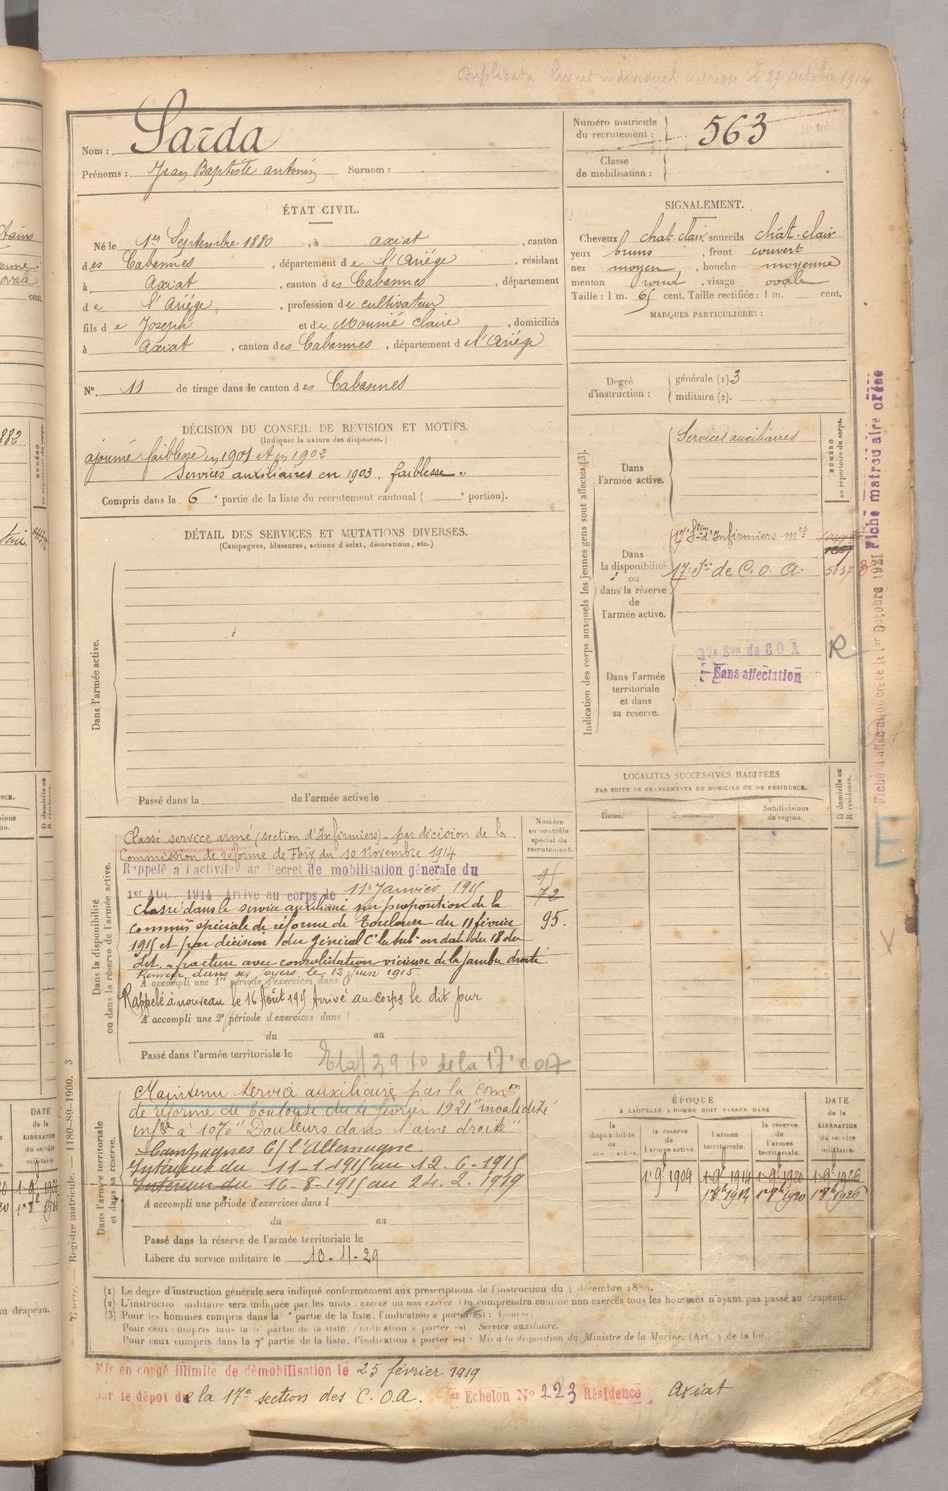 Duplicata livret individuel adressé le 27 octobre 1914
Nom : Sarda
Prénoms : Jean Baptiste antonin Surnom :
Numéro matricule du recrutement : 563
Classe de mobilisation :
ÉTAT CIVIL.
Né le 1er Septembre 1880, à axiat, canton
des Cabannes, département de l'Ariège, résidant
à Axiat, canton des Cabannes, département
de l'Ariège, profession de cultivateur
fils de Joseph et de Mounié Claire, domiciliés
à Axiat, canton des Cabannes, département de l'Ariège
No 11 de tirage dans le canton des Cabannes
SIGNALEMENT.
Cheveux chat. clair, sourcils chât. clair
yeux bruns, front couvert
nez moyen, bouche moyenne
menton rond, visage ovale
Taille : 1 m. 65 cent. Taille rectifiée : 1 m. cent.
MARQUES PARTICULIÈRES :
Degré d'instruction : générale (1) 3
militaire (2).
DÉCISION DU CONSEIL DE REVISION ET MOTIFS.
(Indiquer la nature des dispenses.)
ajourné faiblesse en 1901 et en 1902
Services auxiliaires en 1903. faiblesse "
Compris dans la 6e partie de la liste du recrutement cantonal ( e portion).
DÉTAIL DES SERVICES ET MUTATIONS DIVERSES.
(Campagnes, blessures, actions d'éclat, décorations, etc.)
Dans l'armée active.
Passé dans la de l'armée active le
Indication des corps auxquels les jeunes gens sont affectés (3).
Dans l'armée active. Services auxiliaires
NUMÉRO au répertoire du corps.
Dans la disponibilité ou dans la réserve de l'armée active.
17e Son d'Infirmiers mres
17e Son de C. O. A. 5037
Dans l'armée territoriale et dans sa réserve.
17e Son de C O A
Sans affectation
R
Fiche matriculaire créée
LOCALITÉS SUCCESSIVES HABITÉES
PAR SUITE DE CHANGEMENTS DE DOMICILE OU DE RÉSIDENCE.
Dates. Communes. Subdivisions de région. D domicile ou R résidence.
Dans la disponibilité ou dans la réserve de l'armée active.
Numéro au contrôle spécial du recrutement.
Classé service armé (section d'Infirmiers) par décision de la
Commission de réforme de Foix du 10 novembre 1914
Rappelé à l'activité par Décret de mobilisation générale du
1er Août 1914 Arrivé au corps le 11 Janvier 1915
Classé dans le service auxiliaire sur proposition de la
Commion spéciale de réforme de Toulouse du 11 février
1915 et par décision du Général Ct la subon en date du 18 du
dit. fracture avec consolidation vicieuse de la jambe droite
Renvoyé dans ses foyers le 12 Juin 1915.
A accompli une 1re période d'exercices dans
Rappelé à nouveau le 16 Août 1915 Arrivé au corps le dit jour
A accompli une 2e période d'exercices dans l
du au
Passé dans l'armée territoriale le
95.
Dans l'armée territoriale et dans sa réserve.
Maintenu service auxiliaire par la Comon
de réforme de Toulouse du 4 février 1921 "invalidité
infre à 10% "Douleurs dans l'aine droite"
Campagnes C/ l'Allemagne
Intérieur du 11-1-1915 au 12-6-1915
Intérieur du 16-8-1915 au 24.2.1919
A accompli une période d'exercices dans l
du au
Passé dans la réserve de l'armée territoriale le
Libéré du service militaire le 10-11-29
ÉPOQUE
À LAQUELLE L'HOMME DOIT PASSER DANS
la disponibilité de l'armée active. la réserve de l'armée active. l'armée territoriale. la réserve de l'armée territoriale. DATE de la LIBÉRATION du service militaire.
1er 9bre 1904 1er 9bre 1914 1er 9bre 1920 1er 9bre 1926
(1) Le degré d'instruction générale sera indiqué conformément aux prescriptions de l'instruction du 4 décembre 1889.
(2) L'instruction militaire sera indiquée par les mots : exercé ou non exercé. On comprendra comme non exercés tous les hommes n'ayant pas passé au drapeau.
Pour ceux compris dans la 7e partie de la liste, l'indication à porter est : Mis à la disposition du Ministre de la Marine.
Mis en congé illimité de démobilisation le 25 février 1919
par le dépôt de la 17e section des C. O. A. 1er Echelon No 223 Résidence Axiat